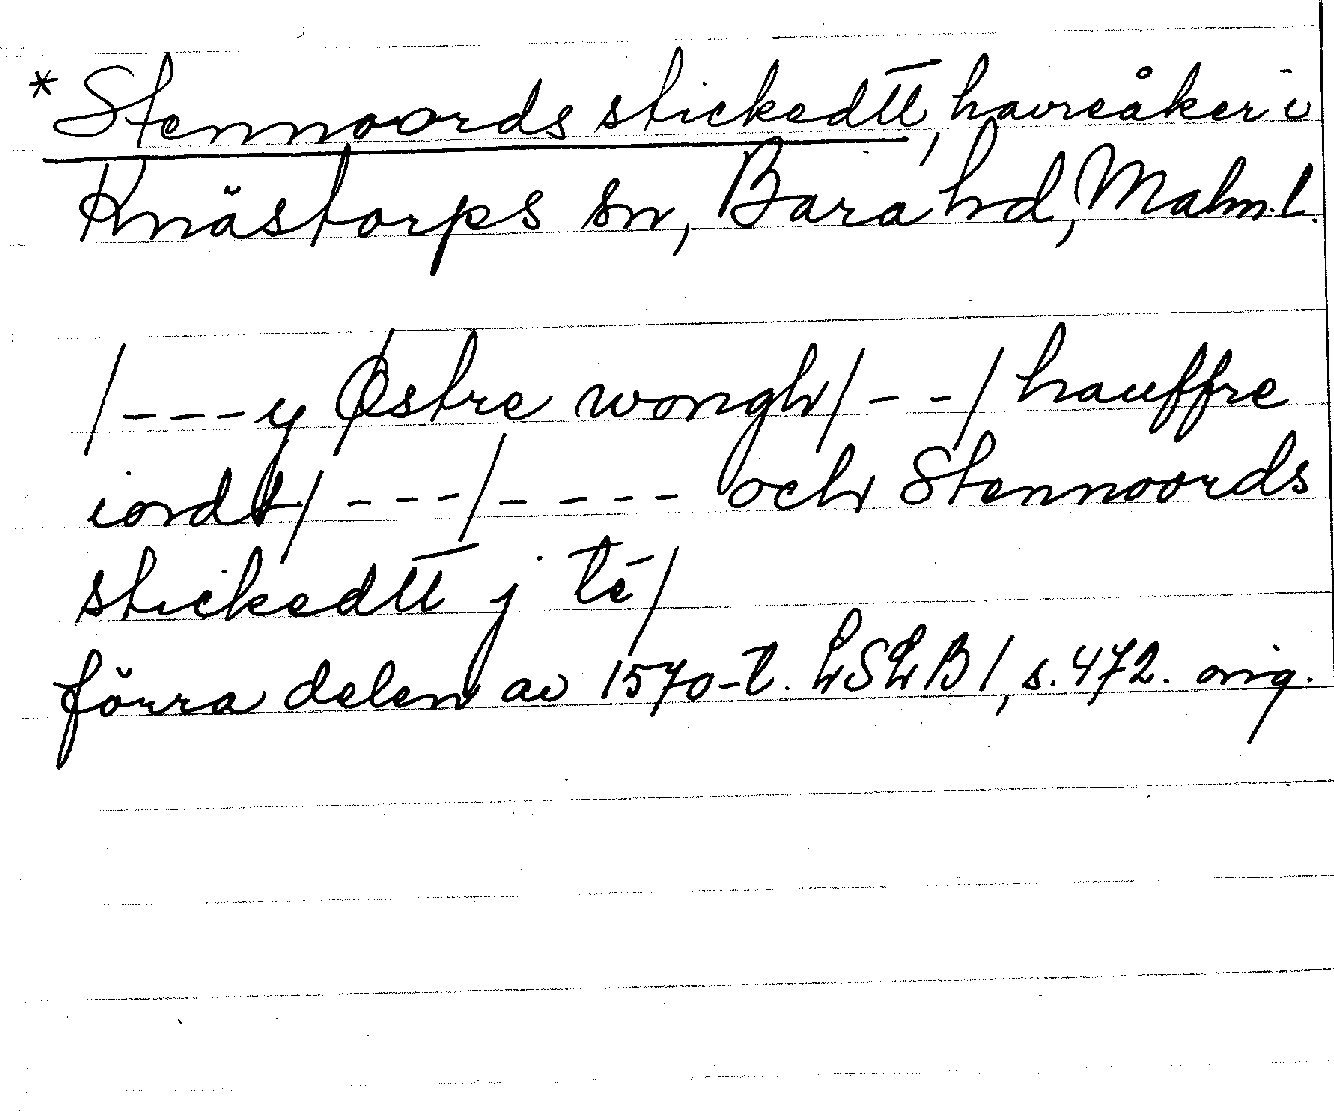 *Stennoords stickedtt, havreåker i
Knästorps sn, Bara hd, Malm.l.
/---y Østre wongh/--/hauffre
iordt/---/---- och Stennoords
stickedtt j té/
förra delen av 1570-t. LSLB 1, s. 472. orig.